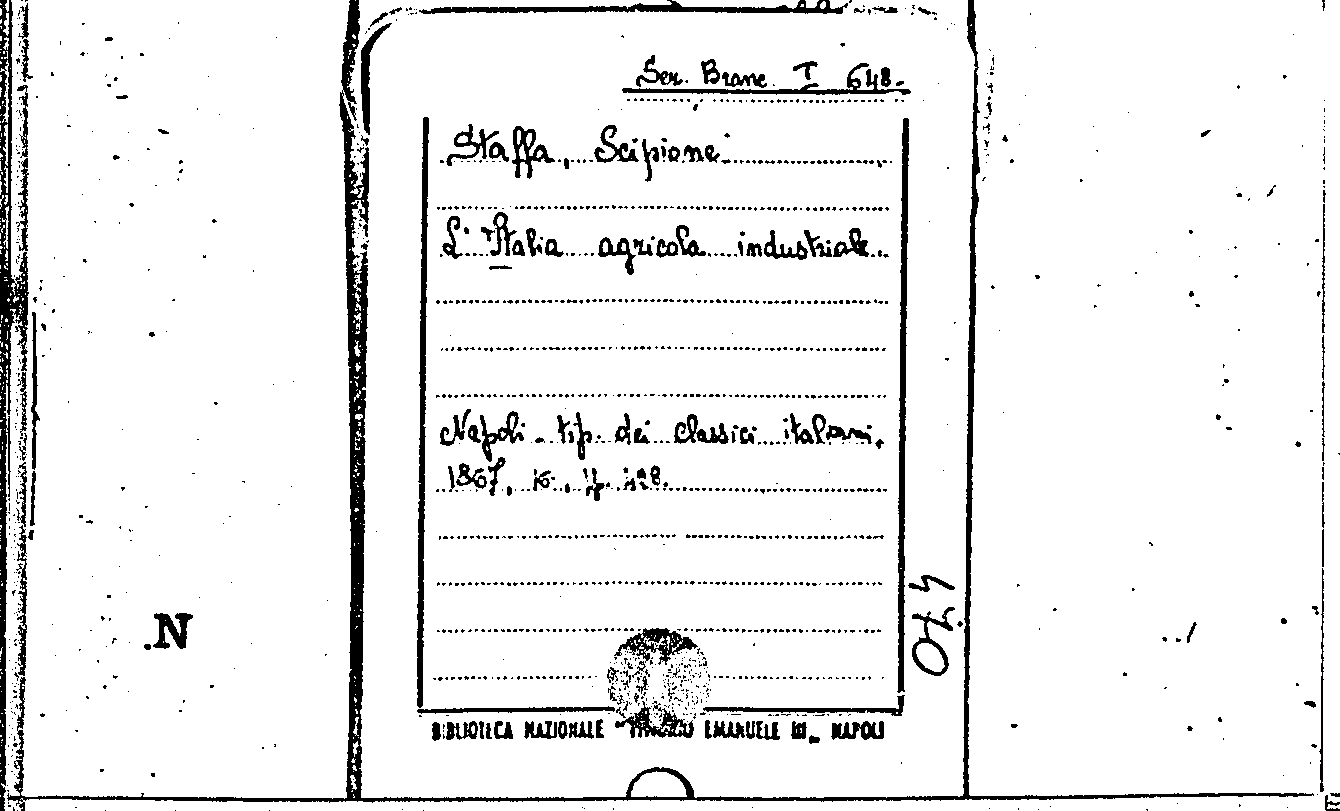 Ser. Branc. I 648.
Staffa, Scipione
L'Italia agricola industriale.
Napoli. tip. dei classici italiani.
1867,
470
BIBLIOTECA NAZIONALE EMANUELE III NAPOLI
N